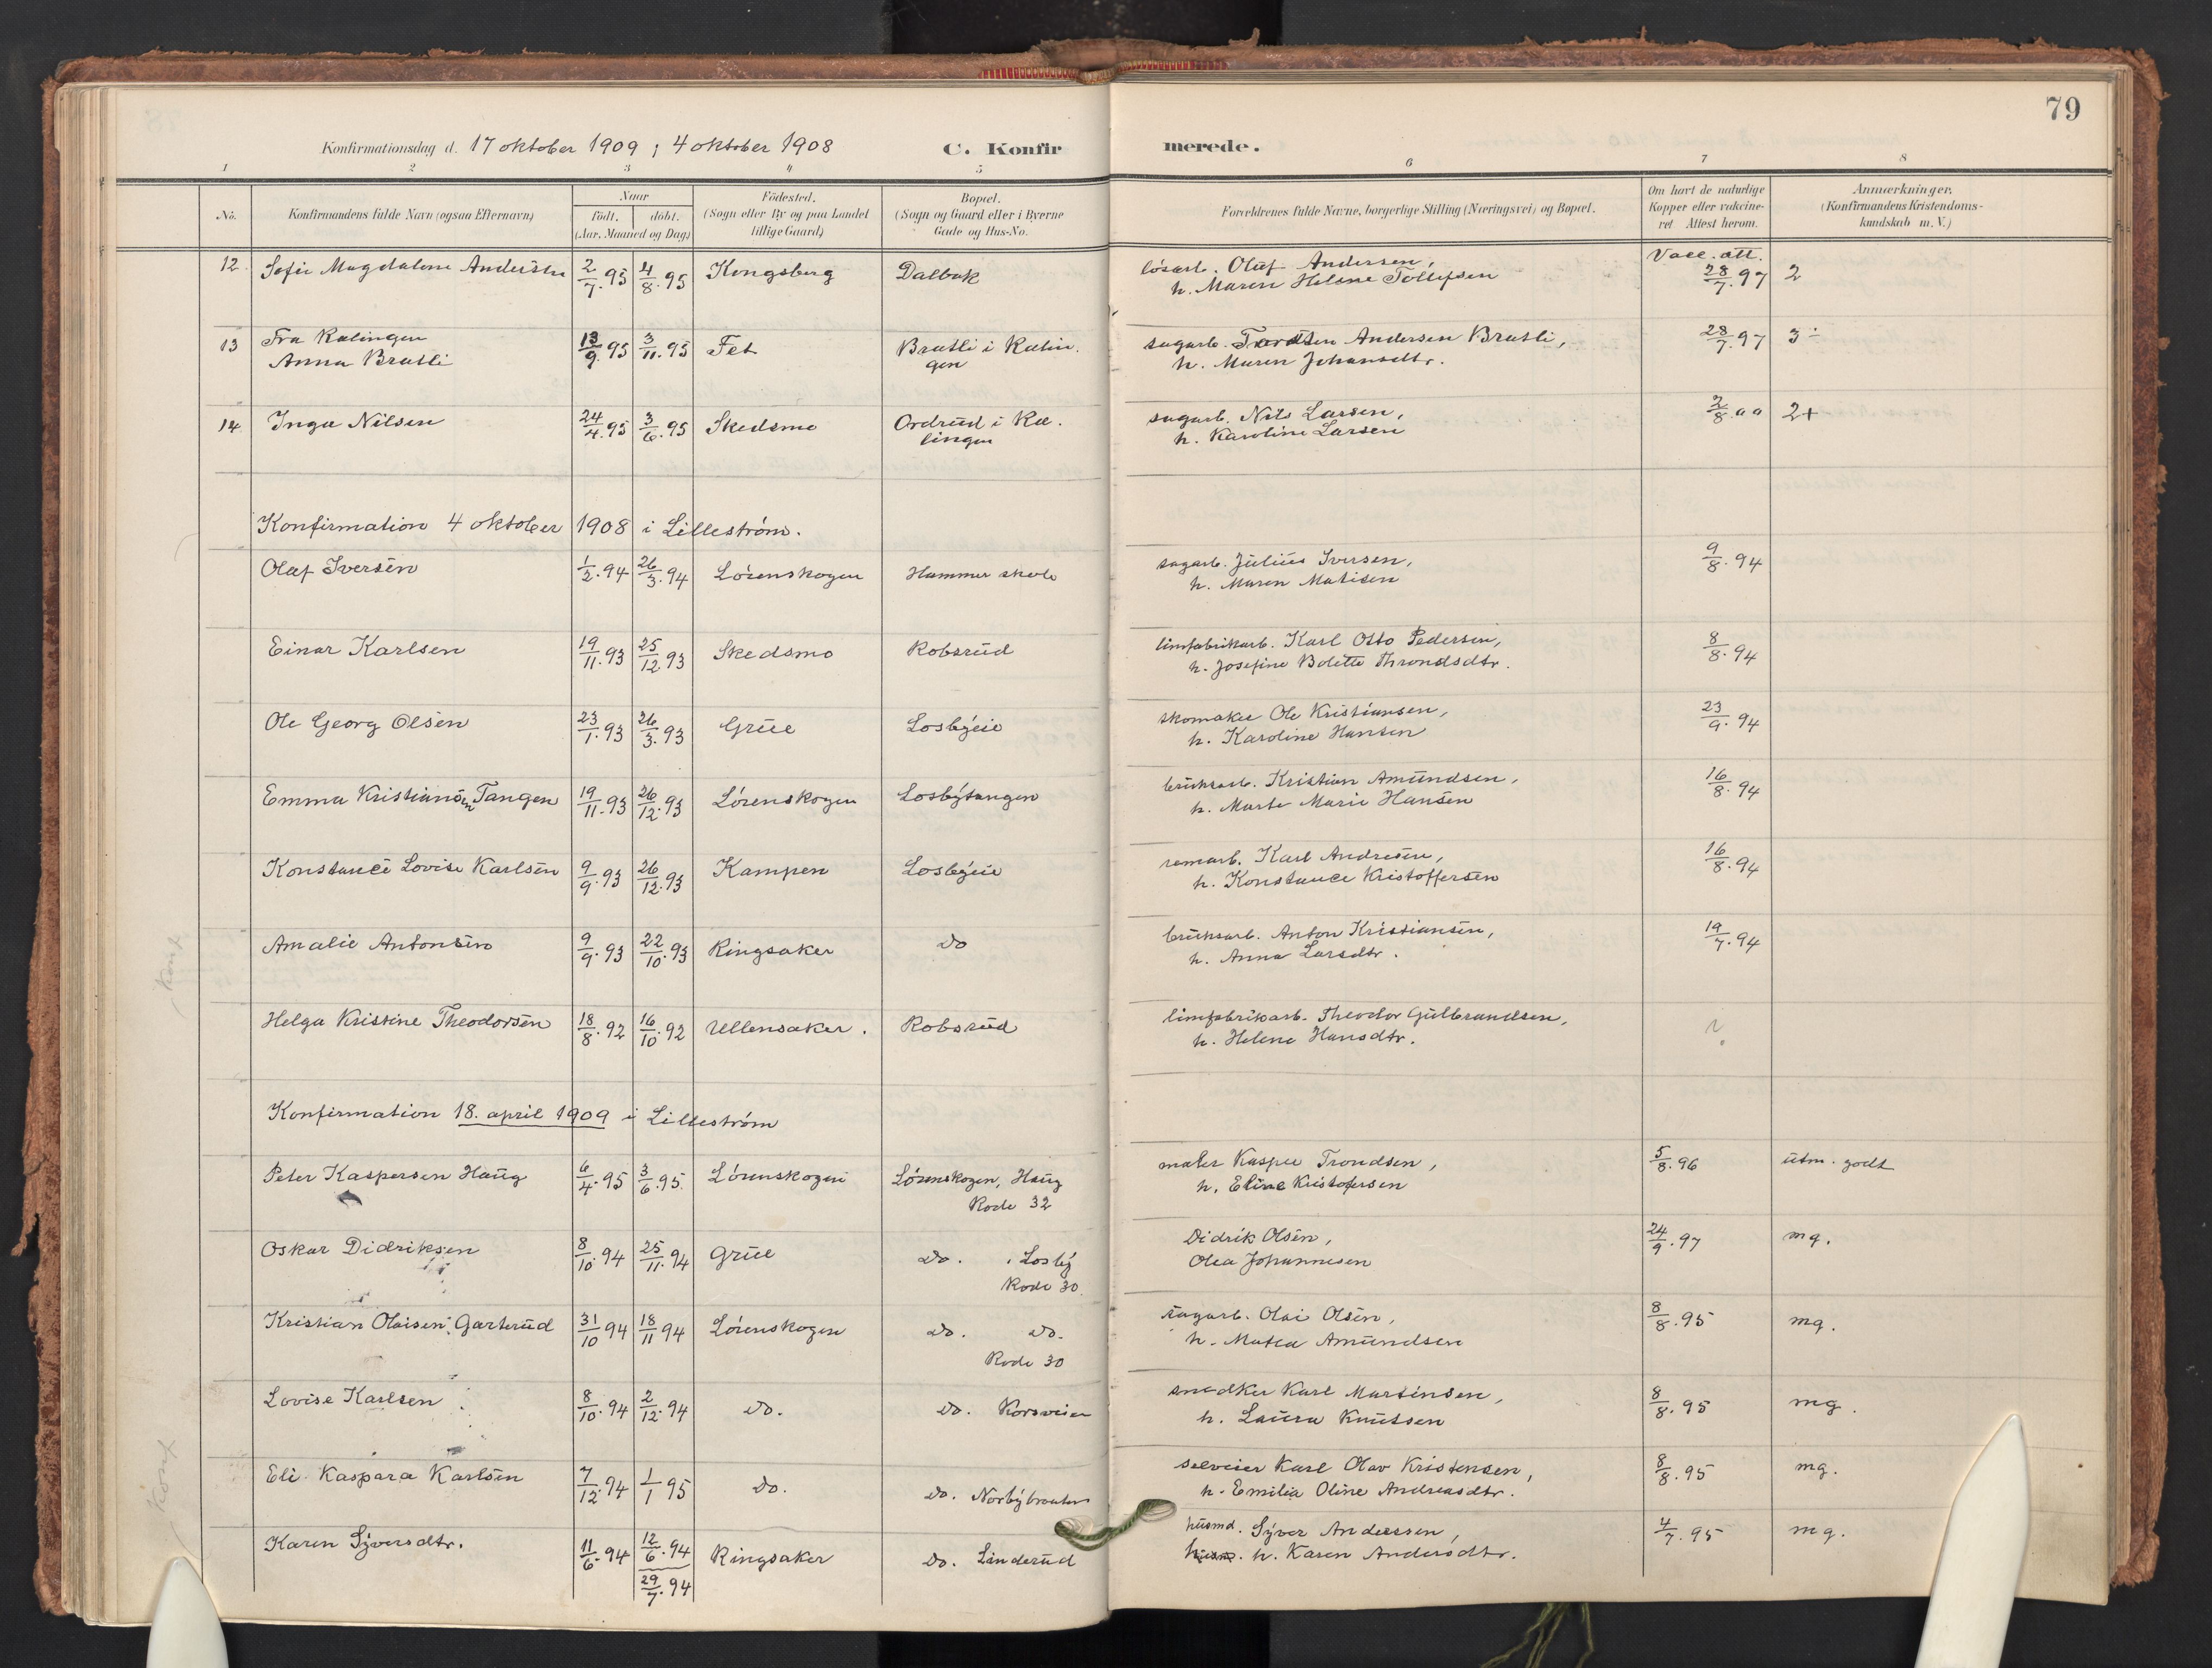 79
Konfirmationsdag d. 17 oktober 1909 ; 4 oktober 1908 C. Konfir merede.
1 2 3 4 5 6 7 8
No. Konfirmandens fulde Navn (ogsaa Efternavn) Naar født. døbt. (Aar, Maaned og Dag) Fødested. (Sogn eller By og paa Landet tillige Gaard) Bopæl. (Sogn og Gaard eller i Byerne Gade og Hus-No. Forældrenes fulde Navne, borgerlige Stilling (Næringsvei) og Bopæl. Om havt de naturlige Kopper eller vakcineret Attest herom. Anmærkninger. (Konfirmandens Kristendomskundskab m. V.)
Vacc. att.
12. Sofie Magdalene Andersen 2/7.95 4/8.95 Kongsberg Dalbak løsarb. Olaf Andersen, 28/7.97 2
h. Maren Helene Tollefsen
13 Fra Rælingen
Anna Bratli 13/9.95 3/11.95 Fet Bratli i Rælin. sagarb. Andersen Bratli, 28/7.97 3÷
gen h. Maren Johansdtr.
14. Inga Nilsen 24/4.95 3/6.95 Skedsmo Ordrud i Ræ. sagarb. Nils Larsen, 2+
lingen h. Karoline Larsen
Konfirmation 4 oktober 1908 i Lillestrøm.
Olaf Iversen 1/2.94 26/3.94 Lørenskogen Hammer skole sagarb. Julius Iversen, 9/8.94
h. Maren Matisen
Einar Karlsen 19/11.93 25/12.93 Skedsmo Robsrud limfabrikarb. Karl Otto Pedersen, 8/8.94
h. Josefine Bolette Throndsdtr.
Ole Georg Olsen 23/1.93 26/3.93 Grue Losbyeie skomaker Ole Kristiansen, 23/9.94
h. Karoline Hansen
Emma Kristiansen Tangen 19/11.93 26/12.93 Lørenskogen Losbytangen bruksarb. Kristian Amundsen, 16/8.94
h. Marte Marie Hansen
Konstance Lovise Karlsen 9/9.93 26/12.93 Kampen Losbyeie Karl Andresen, 16/8.94
h. Konstance Kristoffersen
Amalie Antonsen 9/9.93 22/10.93 Ringsaker Do bruksarb. Anton Kristiansen, 19/7.94
h. Anna Larsdtr.
Helga Kristine Theodorsen 18/8.92 16/10.92 Ullensaker. Robsrud limfabrikarb. Theodor Gulbrandsen, ?
h. Helene Hansdtr.
Konfirmation 18. april 1909 i Lillestrøm
Peter Kaspersen Haug 6/4.95 3/6.95. Lørenskogen Lørenskogen, Haug maler Kasper Trondsen, 5/8.96 utm. godt
Rode 32 h. Eline Kristofersen
Oskar Didriksen 8/10.94 25/11.94 Grue Do. Losby Didrik Olsen, 24/9.97 mg.
Rode 30. Olea Johannesen
Kristian Olaisen Garterud 31/10 94 18/11 94 Lørenskogen Do. Do. sagarb. Olai Olsen, 8/8.95 mg.
Rode 30 h. Matea Amundsen
Lovise Karlsen 8/10.94 2/12.94 Do. Do. Korsveien snedker Karl Martinsen, 8/8.95 mg.
h. Laura Knutsen
Eli Kaspara Karlsen 7/12.94 1/1 95 Do. Do. Norbybraaten selveier Karl Olav Kristensen, 8/8.95 mg.
h. Emilia Oline Andreasdtr.
Karen Syversdtr. 11/6.94 12/6.94 Ringsaker Do. Linderud husmd. Syver Anderssen, 4/7.95 mg.
29/7.94 h. Karen Andersdtr.